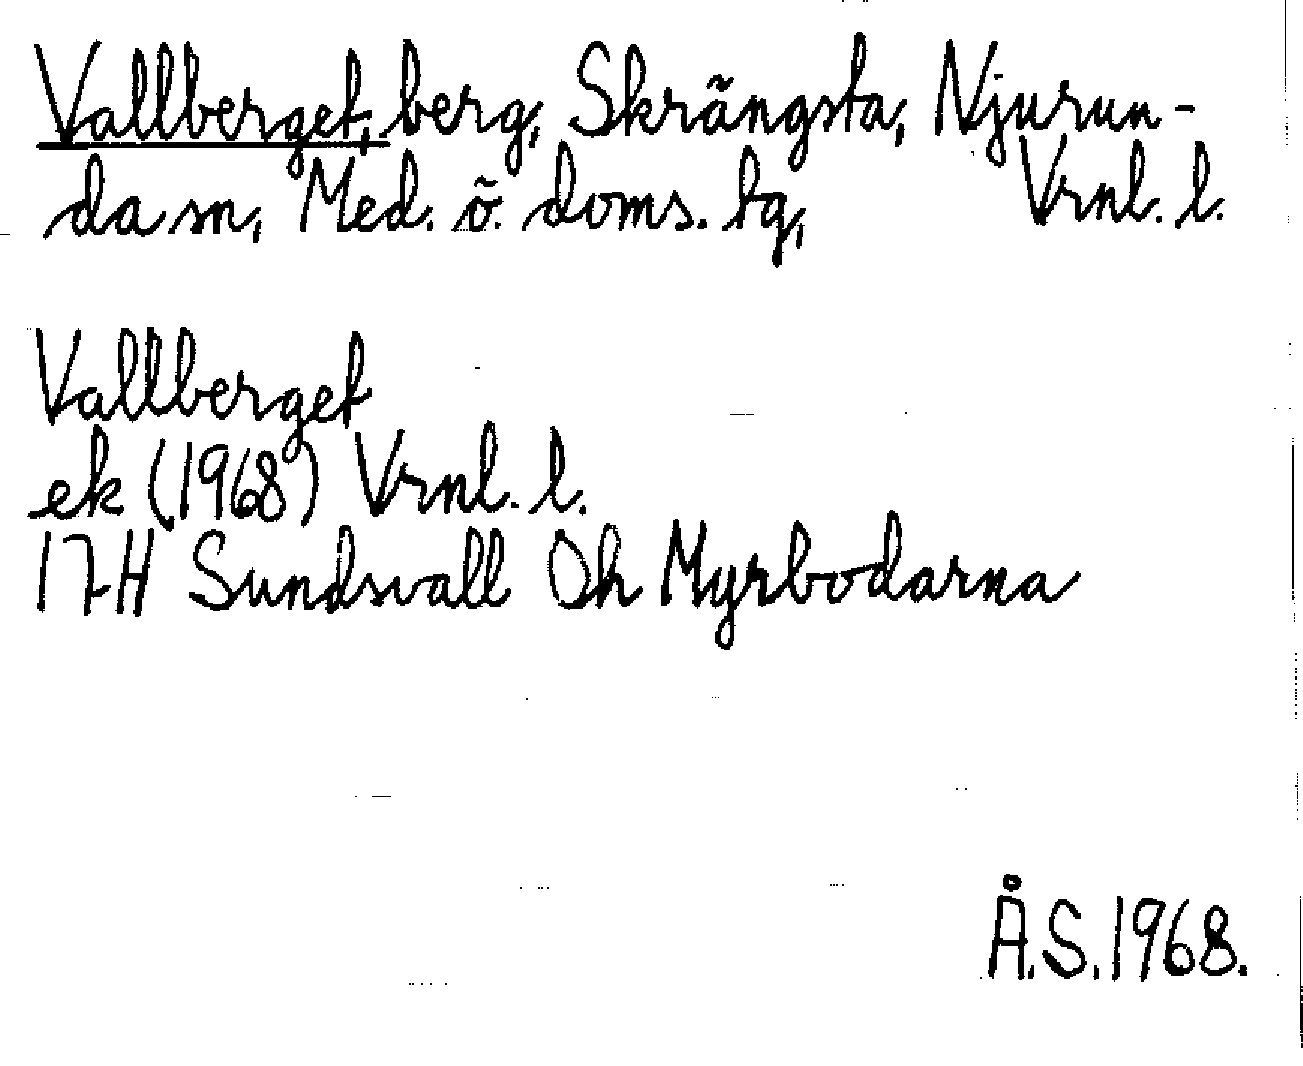 Vallberget, berg, Skrängsta, Njurun-
da sn, Med. ö. doms. tg, Vrnl. l.
Vallberget
ek (1968) Vrnl. l.
17H Sundsvall Öh Myrbodarna
Å.S. 1968.